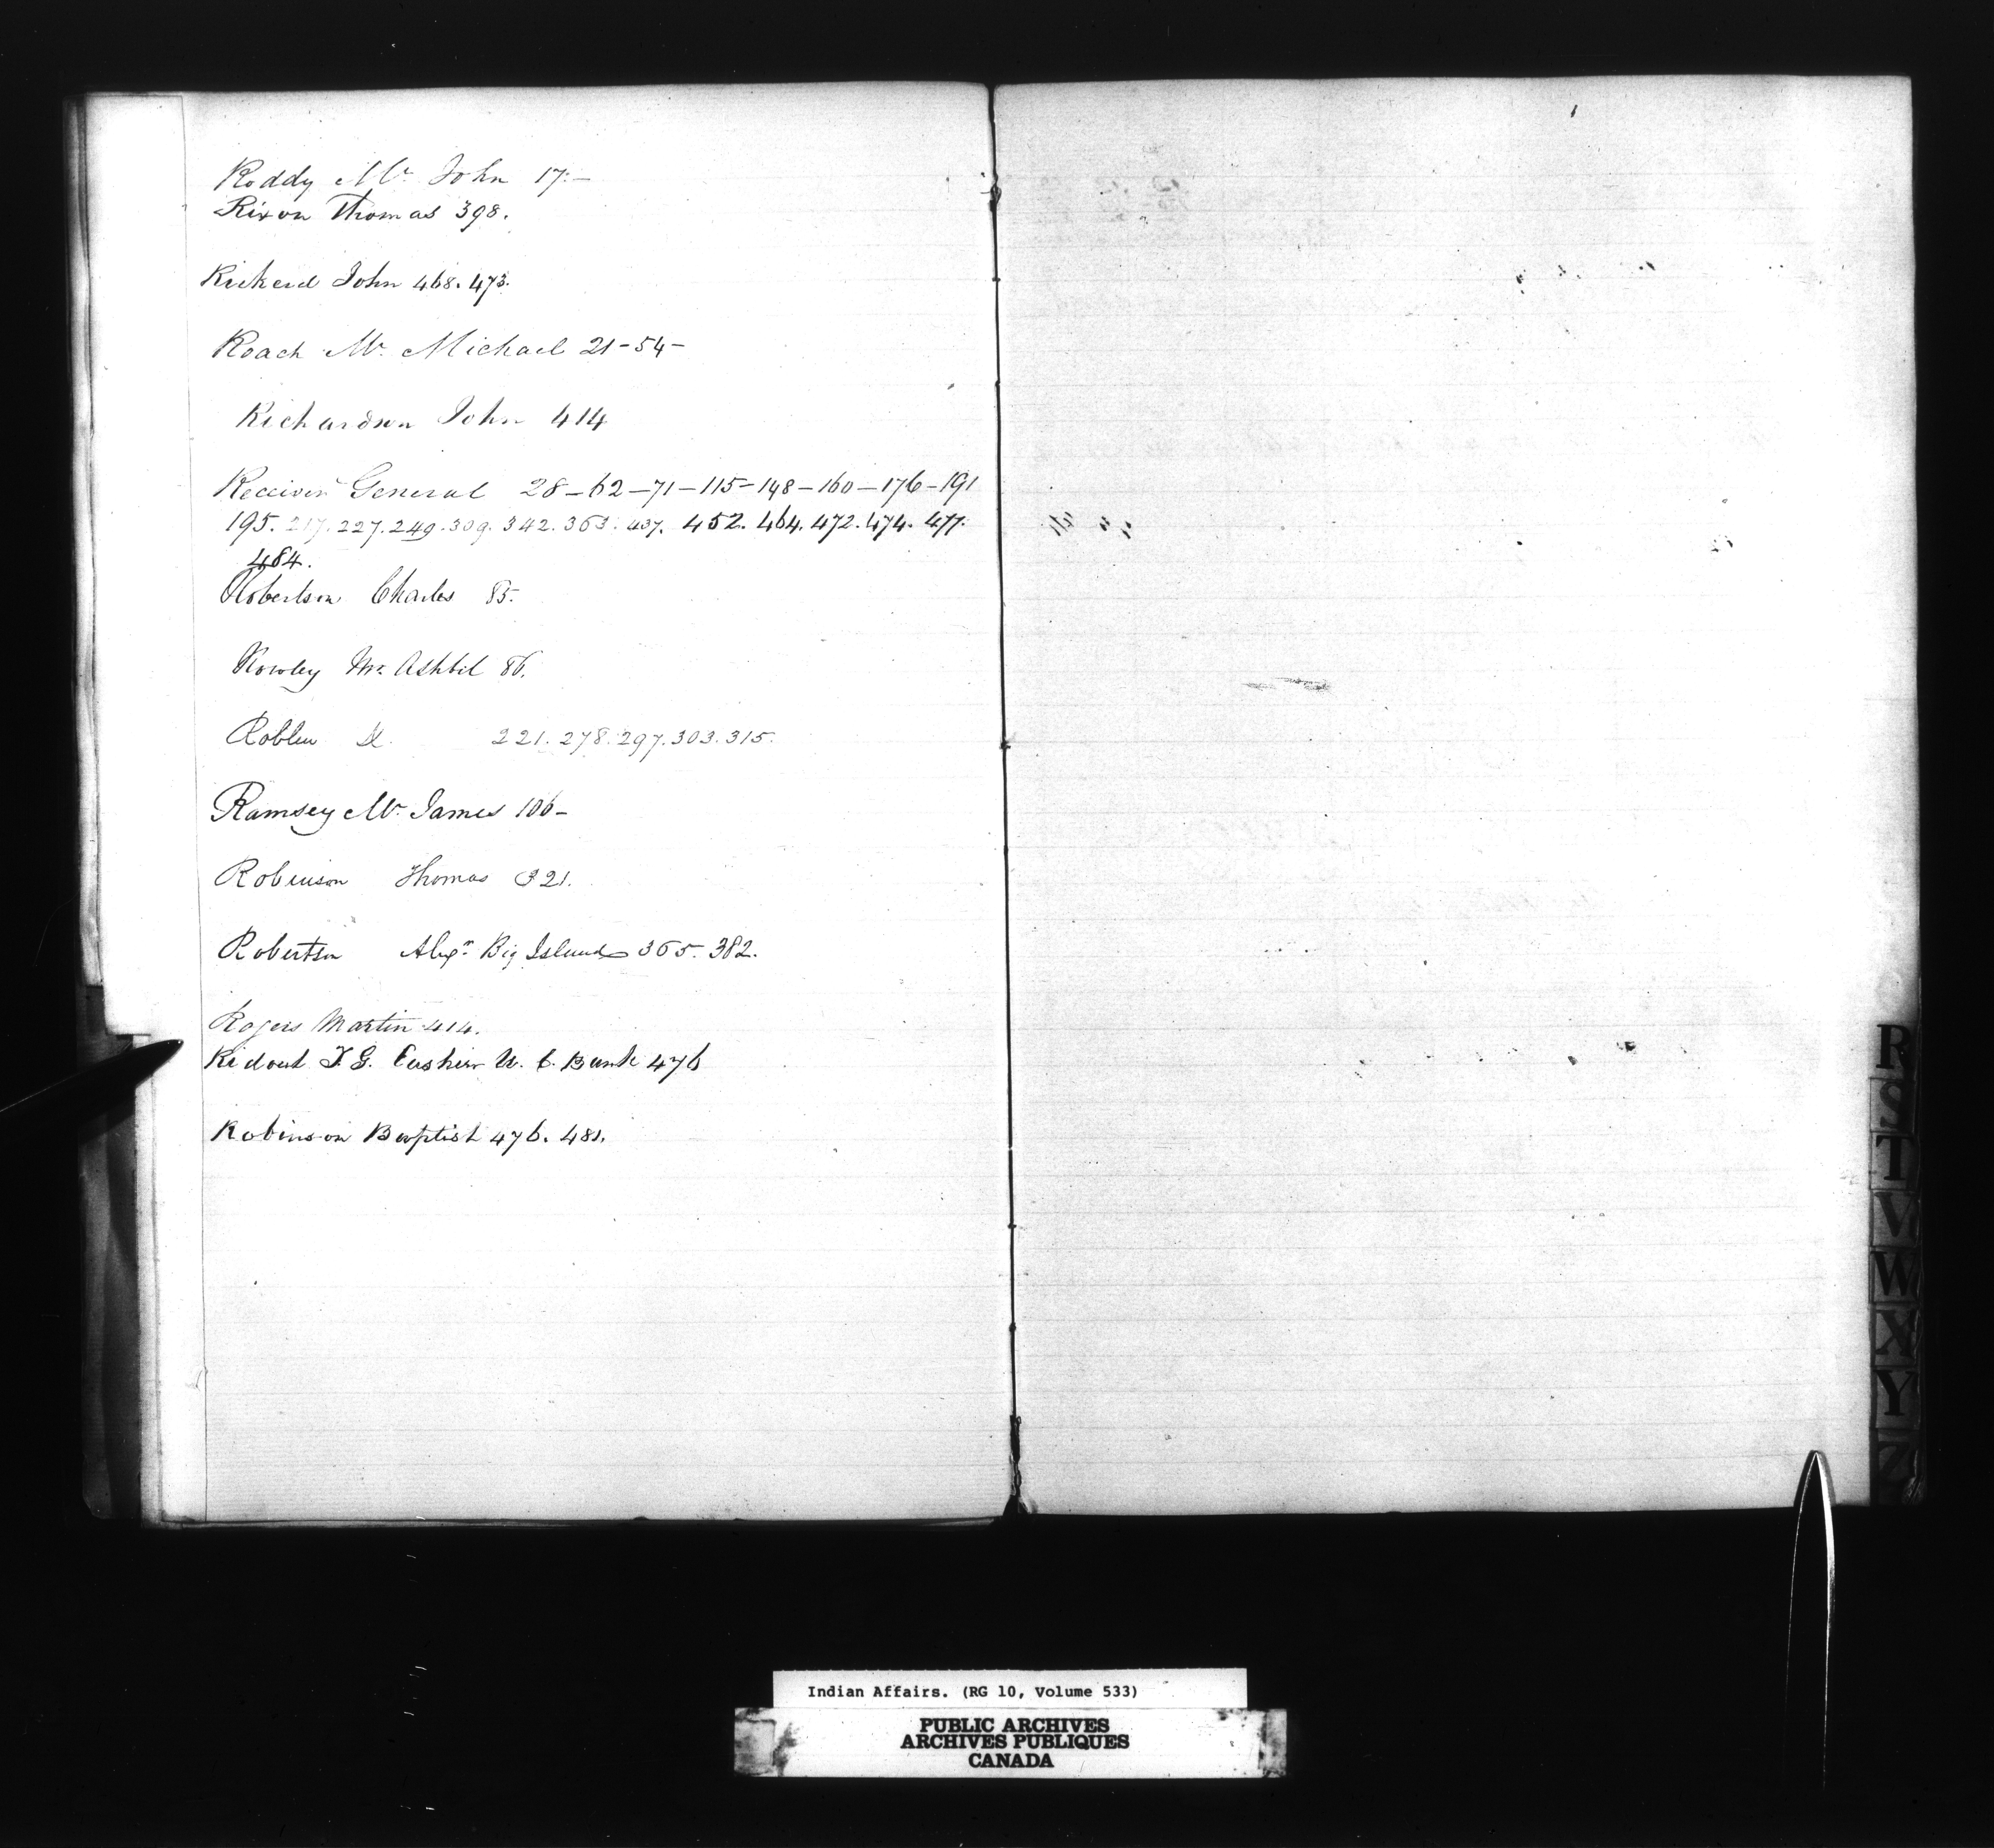 Roddy Mr. John 17.-
Rixon Thomas 398.
Rickerd John 468. 473.
Roach Mr. Michael 21-54-
Richardson John 414
Receiver General 28-62-71-115-148-160-176-191
195. 217. 227. 249. 309. 342. 363. 437. 452. 464. 472. 474. 477.
484.
Robertson Charles 85.
Rowley Mr. Ashbel 86.
Roblin 221. 278. 297. 303. 315.
Ramsey Mr. James 106-
Robinson Thomas 321.
Robertson Alexr. Big Island 365. 382.
Rogers Martin 414.
Ridout T. G. Cashier U. C. Bank 476
Robinson Baptist 476. 481.
R
S
T
V
W
X
Y
Z
Indian Affairs. (RG 10, Volume 533)
PUBLIC ARCHIVES
ARCHIVES PUBLIQUES
CANADA